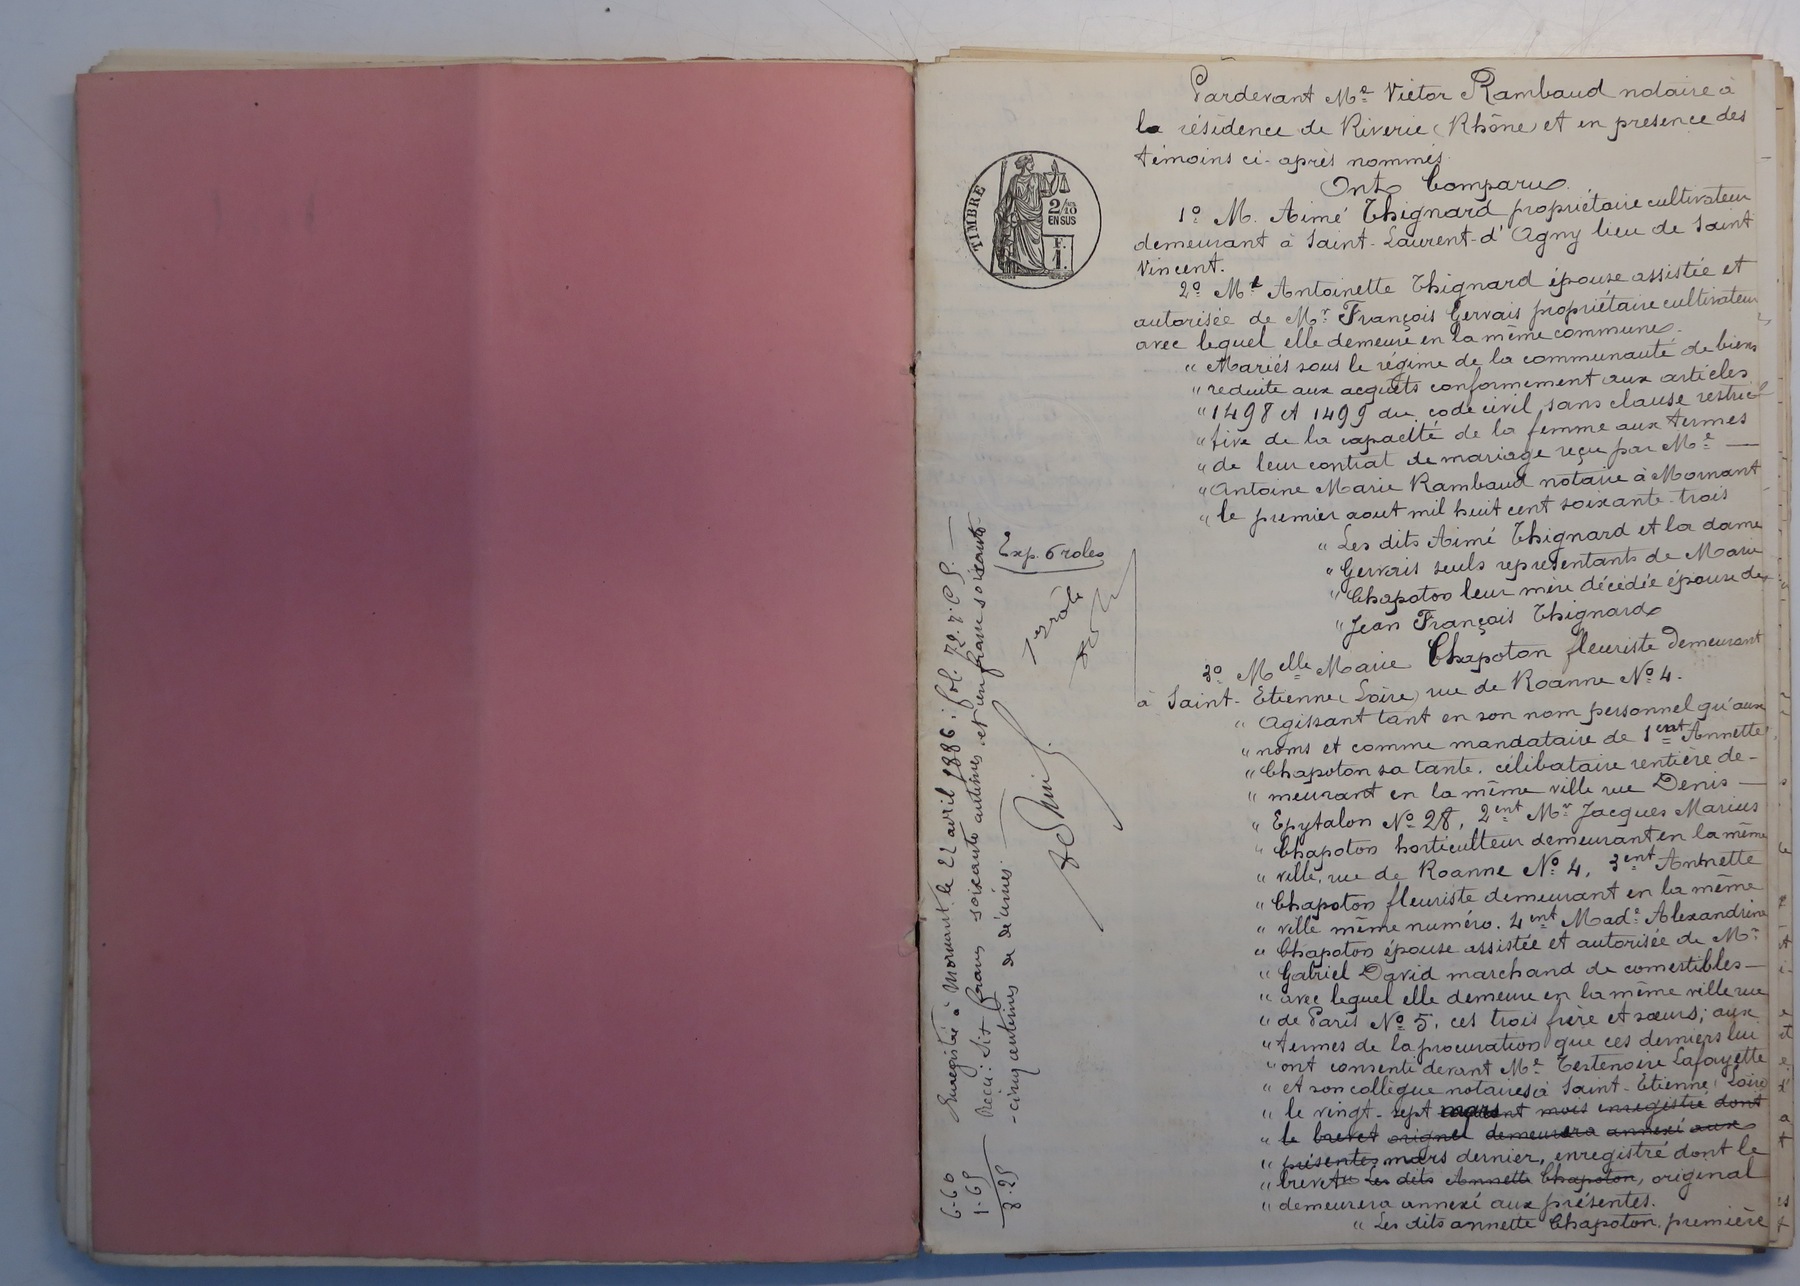 Pardevant Me Victor Rambaud notaire à
la résidence de Riverie (Rhône) et en presence des
témoins ci-après nommés.
Ont Comparu
1o M. Aimé Thignard propriétaire cultivateur
demeurant à Saint-Laurent-d'Agny lieu de Saint
Vincent.
2o Me Antoinette Thignard épouse assistée et
autorisée de Mr François Gervais propriétaire cultivateur
avec lequel elle demeure en la même commune.
" Mariés sous le régime de la communauté de biens
" reduite aux acquêts conformement aux articles
" 1498 et 1499 du code civil sans clause restric
" tive de la capacité de la femme aux termes
" de leur contrat de mariage reçu par Me —
" Antoine Marie Rambaud notaire à Mornant
" le premier aout mil huit cent soixante-trois
" Les dits Aimé Thignard et la dame
" Gervais seuls représentants de Marie
" Chapoton leur mère décédée épouse de
" Jean François Thignard
3o Melle Marie Chapoton fleuriste demeurant
à Saint-Etienne (Loire) rue de Roanne No 4.
" Agissant tant en son nom personnel qu'aux
" noms et comme mandataire de 1ent Annette
" Chapoton sa tante, célibataire rentière de-
" meurant en la même ville rue Denis —
" Epytalon No 28, 2ent Mr Jacques Marius
" Chapoton horticulteur demeurant en la même
" ville, rue de Roanne No 4, 3ent Annette
" Chapoton fleuriste demeurant en la même
" ville même numéro. 4ent Made Alexandrine
" Chapoton épouse assistée et autorisée de Mr
" Gabriel David marchand de comestibles —
" avec lequel elle demeure en la même ville rue
" de Paris No 5, ces trois frère et sœurs; aux
" termes de la procuration que ces derniers lui
" ont consenti devant Me Testenoire Lafayette
" et son collègue notaires à Saint-Etienne (Loire
" le vingt-sept mois enregistré dont
" le brevet orignel demeurera annexé aux
" présentes mars dernier, enregistré dont le
" brevet Les dits Annette Chapoton, original
" demeurera annexé aux présentes.
" Les dits annette Chapoton, première
TIMBRE
2/10
EN SUS
F.
1.
Exp. 6 roles
Enregistré à Mornant le 22 avril 1886. fol. 72.
Reçu: six francs soixante centimes et un franc soixante
-cinq centimes de décimes. —
6-60
1-65
8-25